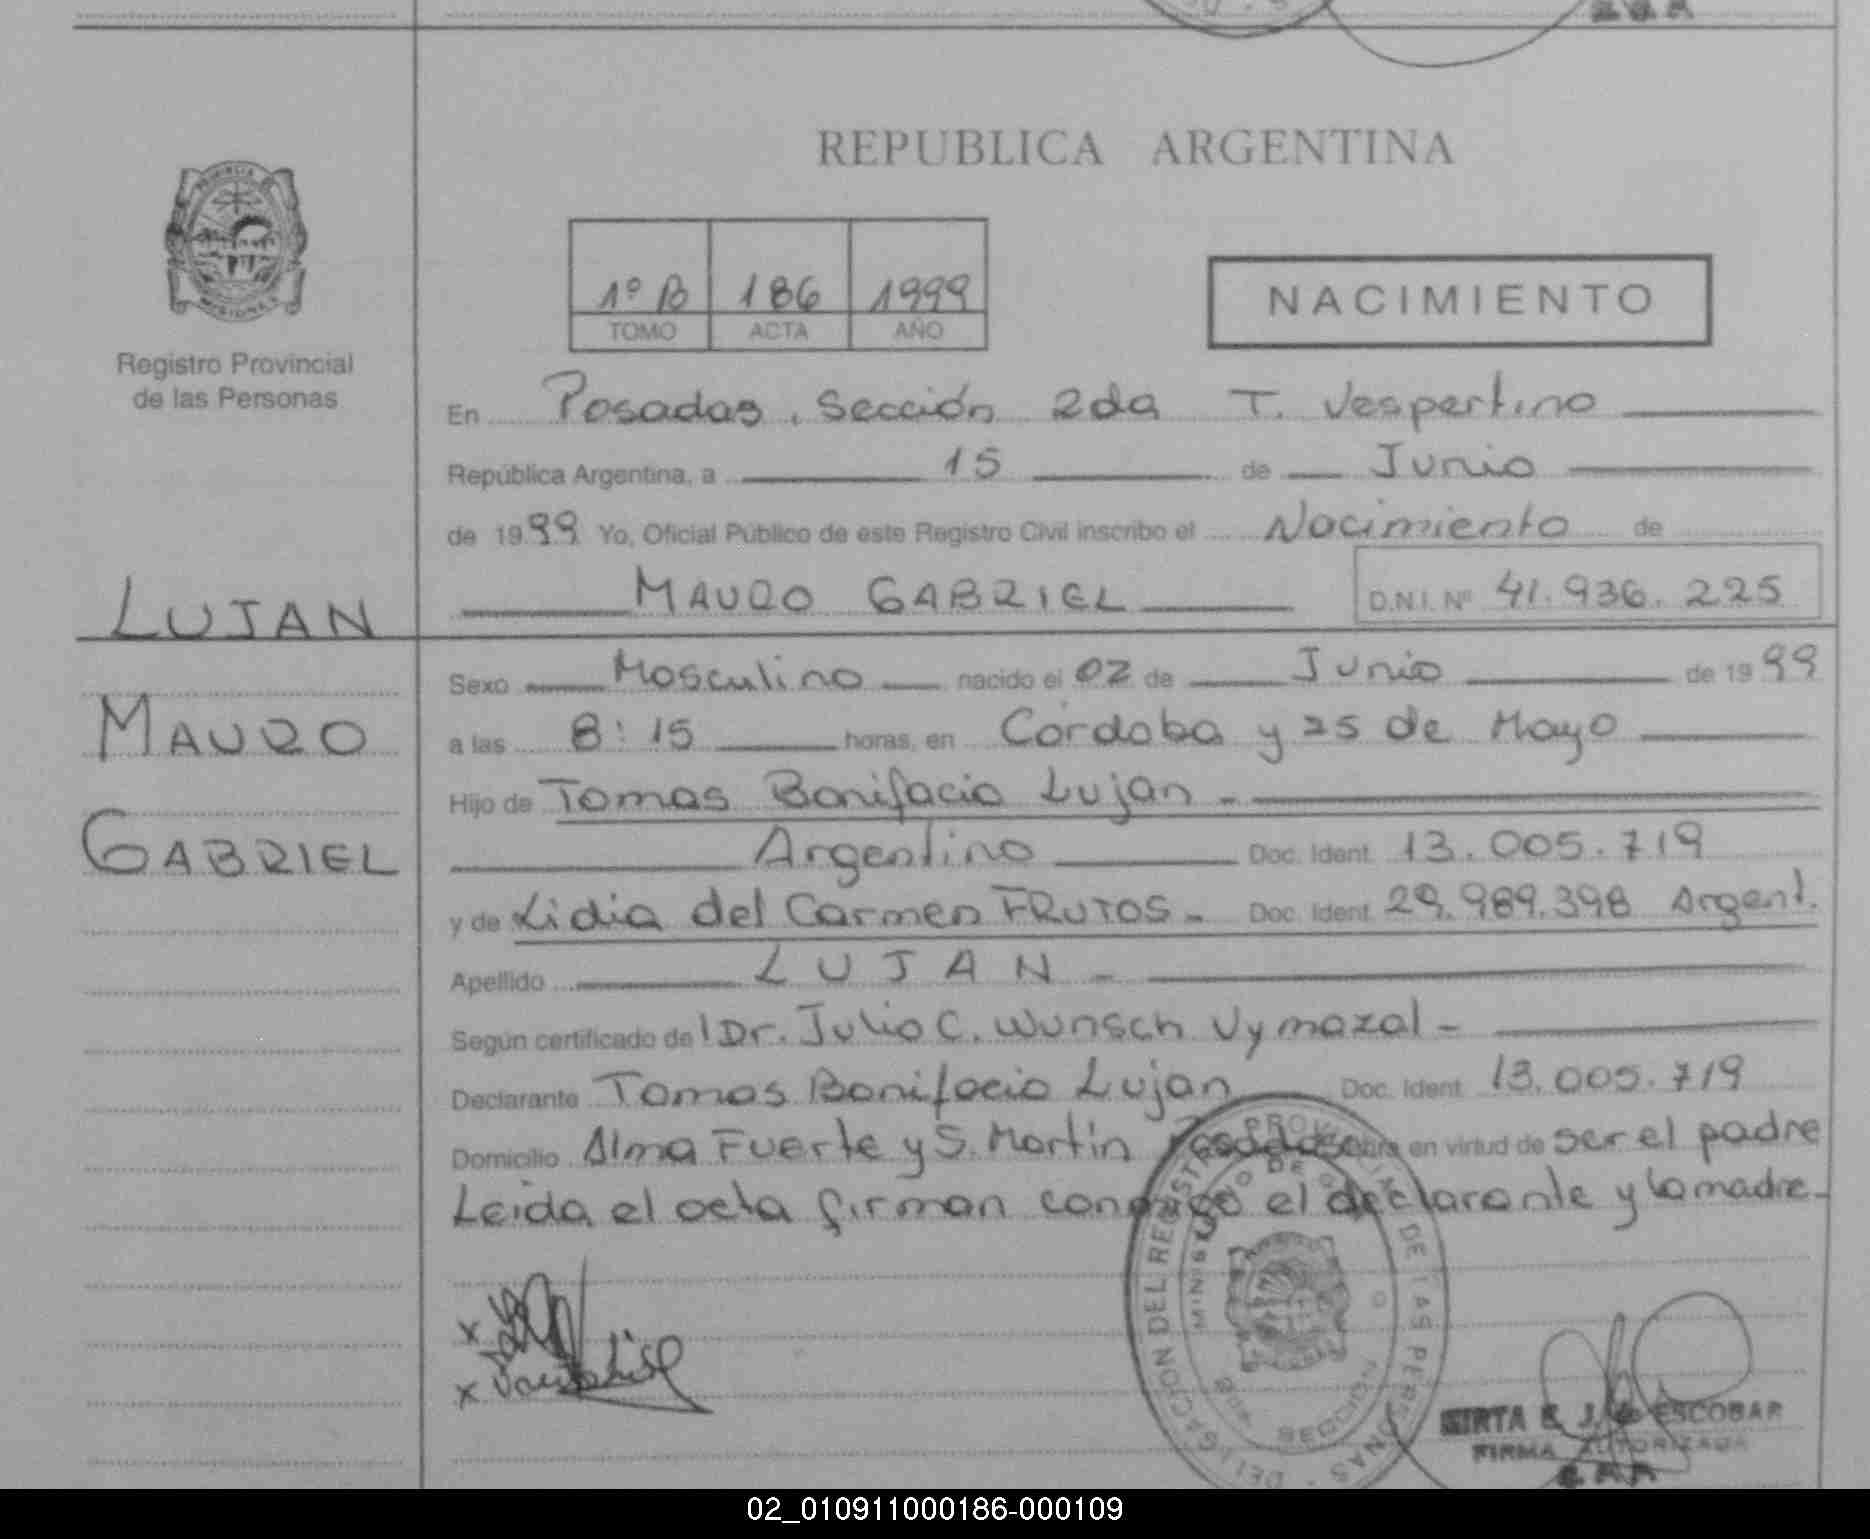 REPUBLICA ARGENTINA
PROVINCIA DE
MISIONES
Registro Provincial
de las Personas
1º B 186 1999
TOMO ACTA AÑO
NACIMIENTO
En Posadas, Sección 2da T. Vespertino
República Argentina, a 15 de Junio
de 1999 Yo, Oficial Público de este Registro Civil inscribo el Nacimiento de
MAURO GABRIEL D.N.I. Nº 41.936.225
LUJAN
MAURO
GABRIEL
Sexo Masculino nacido el 02 de Junio de 1999
a las 8:15 horas, en Córdoba y 25 de Mayo
Hijo de Tomas Bonifacio Lujan -
Argentino Doc. Ident. 13.005.719
y de Lidia del Carmen FRUTOS - Doc. Ident. 29.989.398 Argent.
Apellido LUJAN -
Según certificado de Dr. Julio C. Wunsch Vymazal -
Declarante Tomas Bonifacio Lujan Doc. Ident. 13.005.719
Domicilio Alma Fuerte y S. Martín Posadas obra en virtud de ser el padre
Leida el acta firman conmigo el declarante y la madre -
DELEGACION DEL REGISTRO PROVINCIAL DE LAS PERSONAS
MINISTERIO DE
SECCION
x
x
MIRTA E. J. ESCOBAR
FIRMA AUTORIZADA
02_010911000186-000109